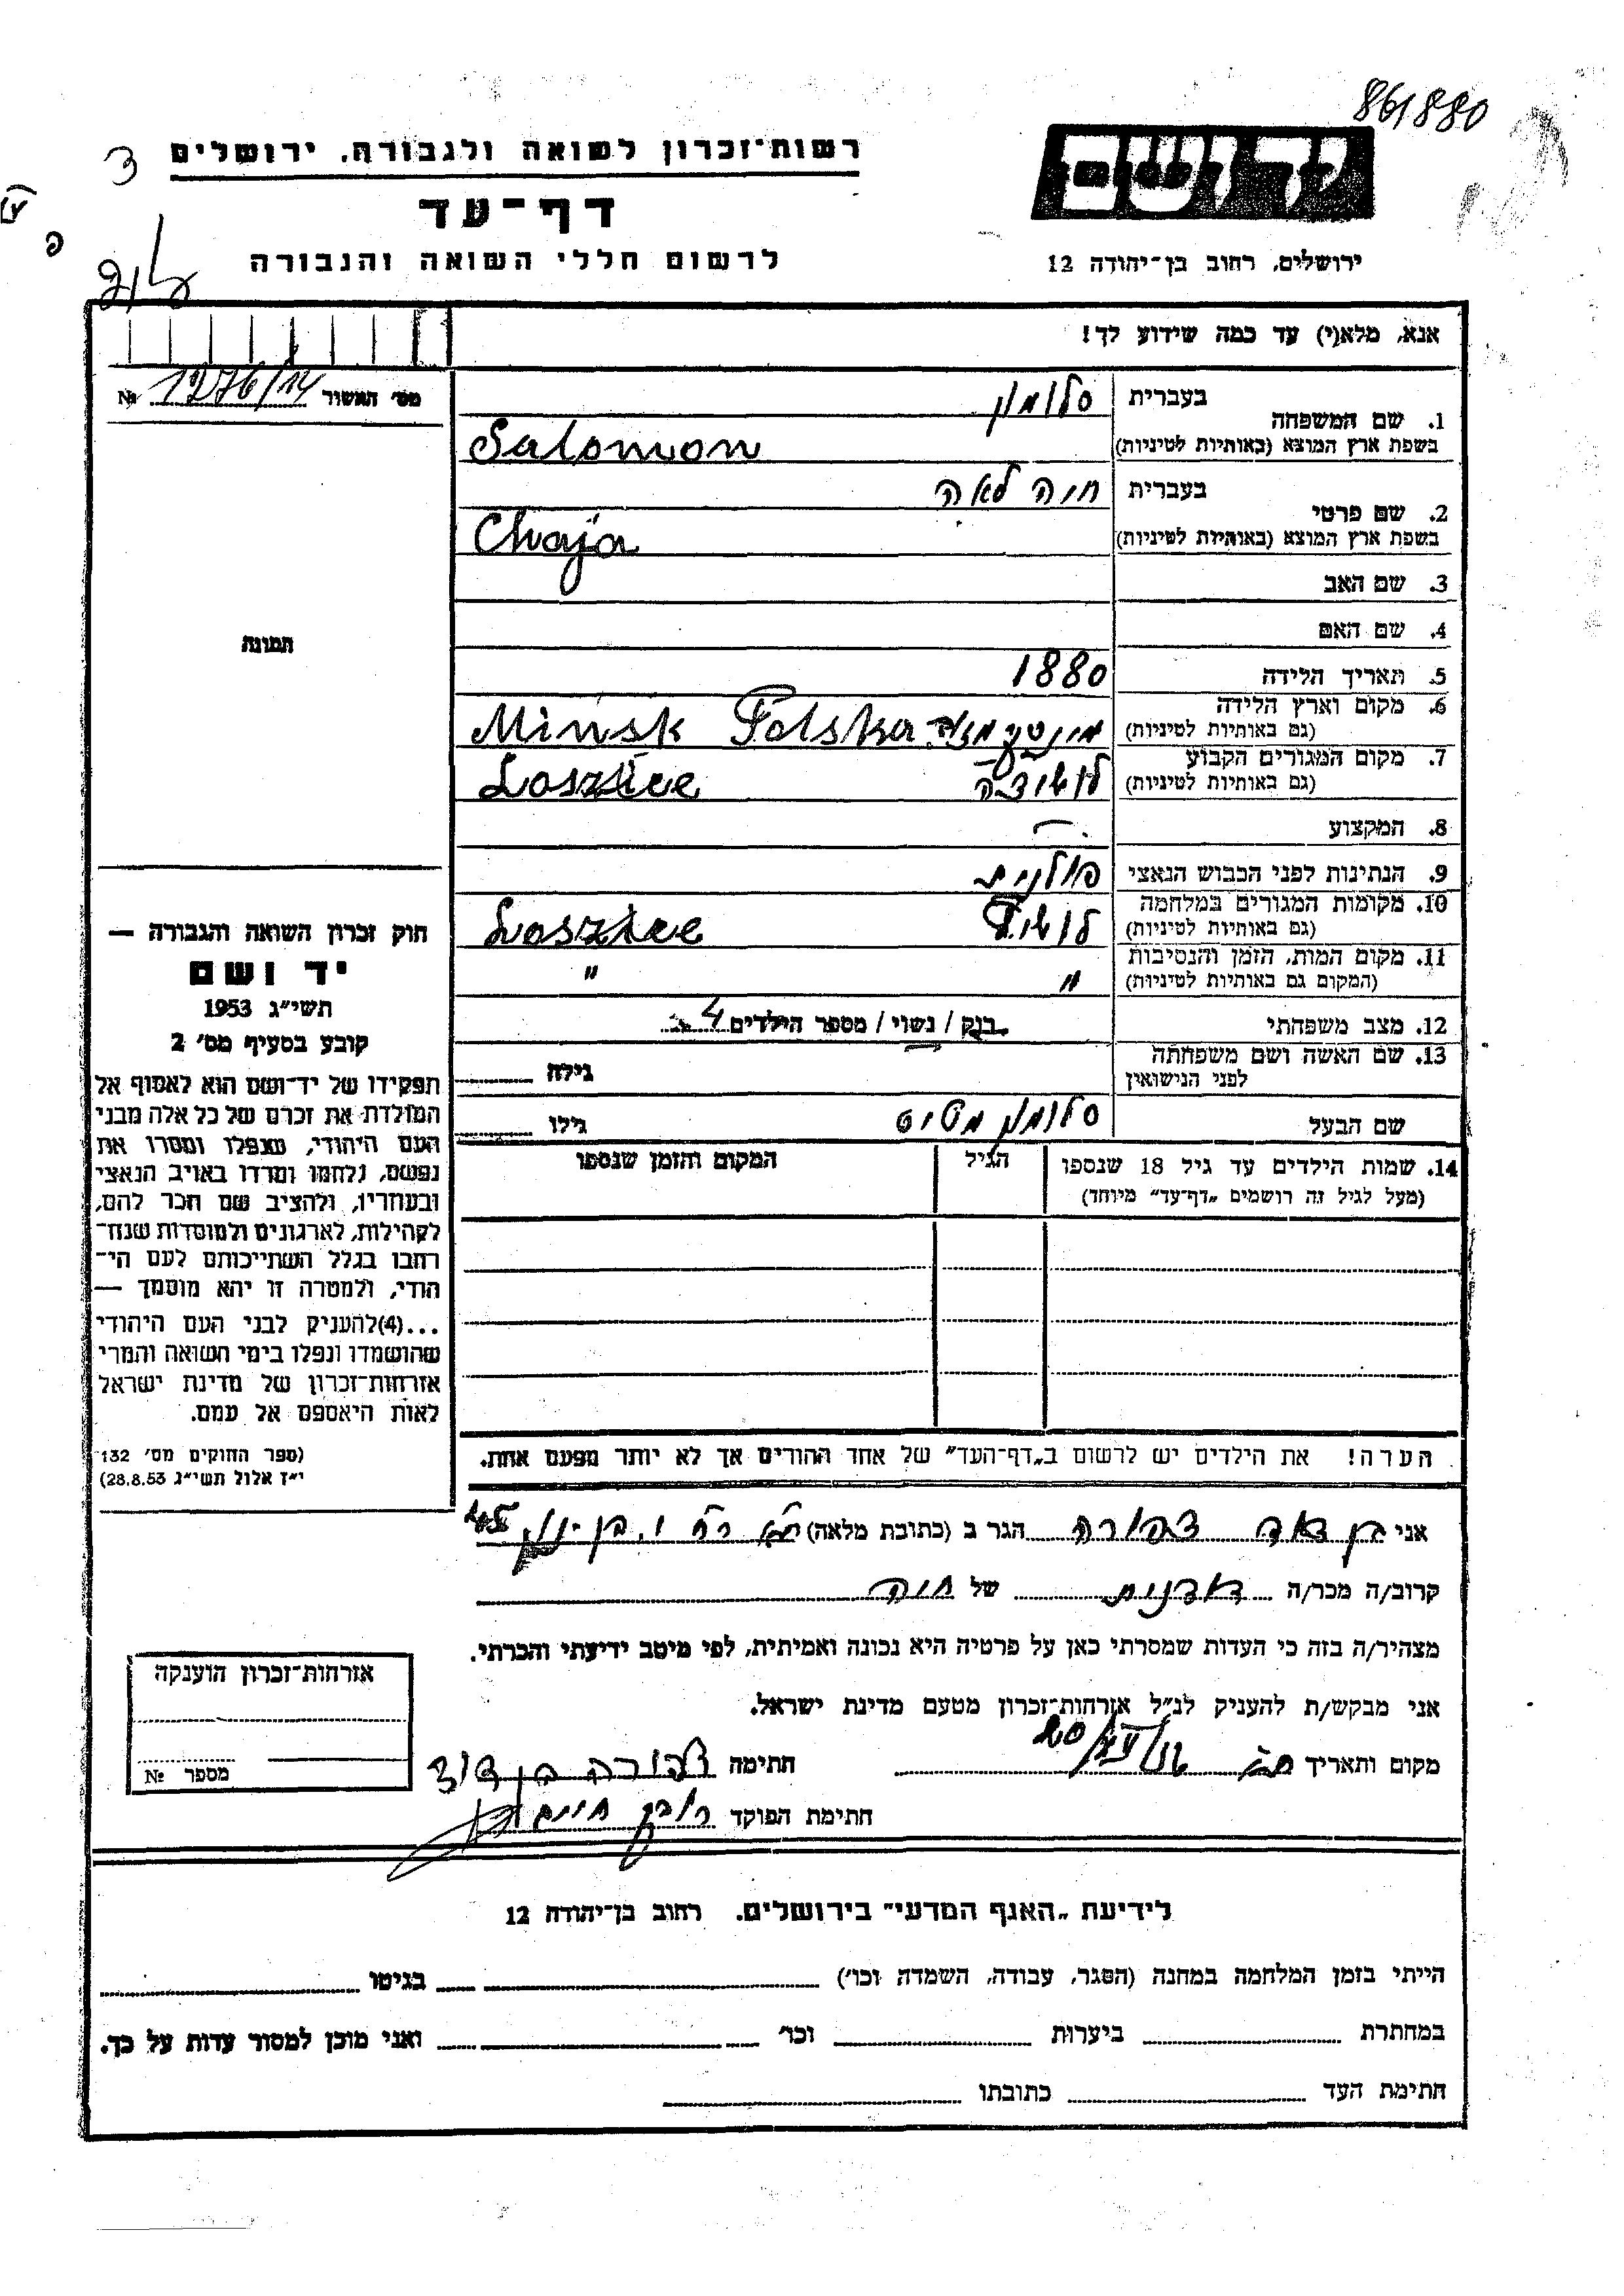 861880
רשות־זכרון לשואה ולגבורה, ירושלים
דף־עד
לרשום חללי השואה והגבורה
יד ושם
ירושלים, רחוב בן־יהודה 12
אנא, מלא(י) עד כמה שידוע לך!
מס׳ האשור № 1276/14
תמונה
1. שם המשפחה בעברית סלומון
בשפת ארץ המוצא (באותיות לטיניות) Salomon
2. שם פרטי בעברית חיה לאה
בשפת ארץ המוצא (באותיות לטיניות) Chaja
3. שם האב
4. שם האם
5. תאריך הלידה 1880
6. מקום וארץ הלידה
(גם באותיות לטיניות) Minsk Polska
7. מקום המגורים הקבוע
(גם באותיות לטיניות) Loszice
8. המקצוע —
9. הנתינות לפני הכבוש הנאצי פולנית
10. מקומות המגורים במלחמה
(גם באותיות לטיניות) Loszice
11. מקום המות, הזמן והנסיבות
(המקום גם באותיות לטיניות) " "
12. מצב משפחתי רווק / נשוי / מספר הילדים 4
13. שם האשה ושם משפחתה
לפני הנישואין גילה
שם הבעל סלומון גילו
14. שמות הילדים עד גיל 18 שנספו הגיל המקום והזמן שנספו
(מעל לגיל זה רושמים „דף־עד” מיוחד)
הערה! את הילדים יש לרשום ב„דף־העד” של אחד ההורים אך לא יותר מפעם אחת.
חוק זכרון השואה והגבורה —
יד ושם
תשי״ג 1953
קובע בסעיף מס׳ 2
תפקידו של יד־ושם הוא לאסוף אל
המולדת את זכרם של כל אלה מבני
העם היהודי, שנפלו ומסרו את
נפשם, נלחמו ומרדו באויב הנאצי
ובעוזריו, ולהציב שם וזכר להם,
לקהילות, לארגונים ולמוסדות שנח־
רבו בגלל השתייכותם לעם הי־
הודי, ולמטרה זו יהא מוסמך —
...(4)להעניק לבני העם היהודי
שהושמדו ונפלו בימי השואה והמרי
אזרחות־זכרון של מדינת ישראל
לאות היאספם אל עמם.
(ספר החוקים מס׳ 132
י״ז אלול תשי״ג 28.8.53)
אני בן דוד צפורה הגר ב (כתובת מלאה)
קרוב/ה מכר/ה של חיה
מצהיר/ה בזה כי העדות שמסרתי כאן על פרטיה היא נכונה ואמיתית, לפי מיטב ידיעתי והכרתי.
אני מבקש/ת להעניק לנ״ל אזרחות־זכרון מטעם מדינת ישראל.
מקום ותאריך חתימה צפורה בן דוד
חתימת הפוקד
אזרחות־זכרון הוענקה
מספר №
לידיעת „האגף המדעי” בירושלים, רחוב בן־יהודה 12
הייתי בזמן המלחמה במחנה (הסגר, עבודה, השמדה וכו׳) בגיטו
במחתרת ביערות וכו׳ ואני מוכן למסור עדות על כך.
חתימת העד כתובתו